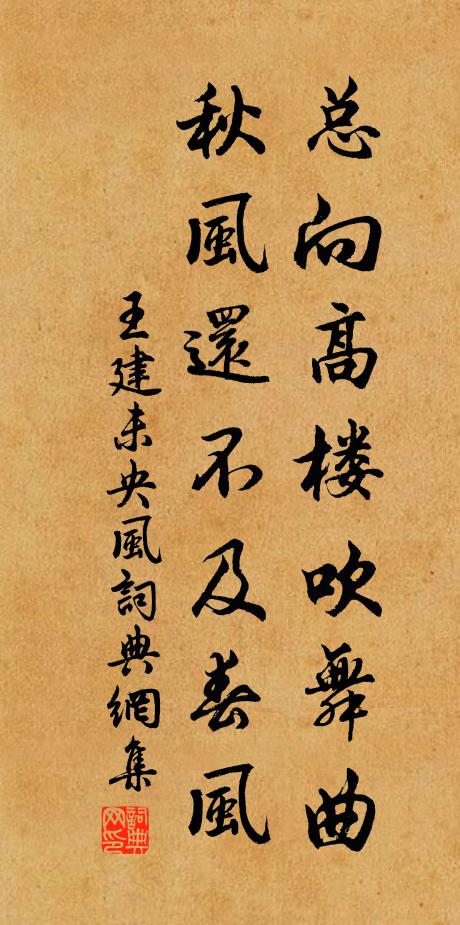 总向高楼吹舞曲
秋風還不及春風
王建未央風詞典網集
詞典網印